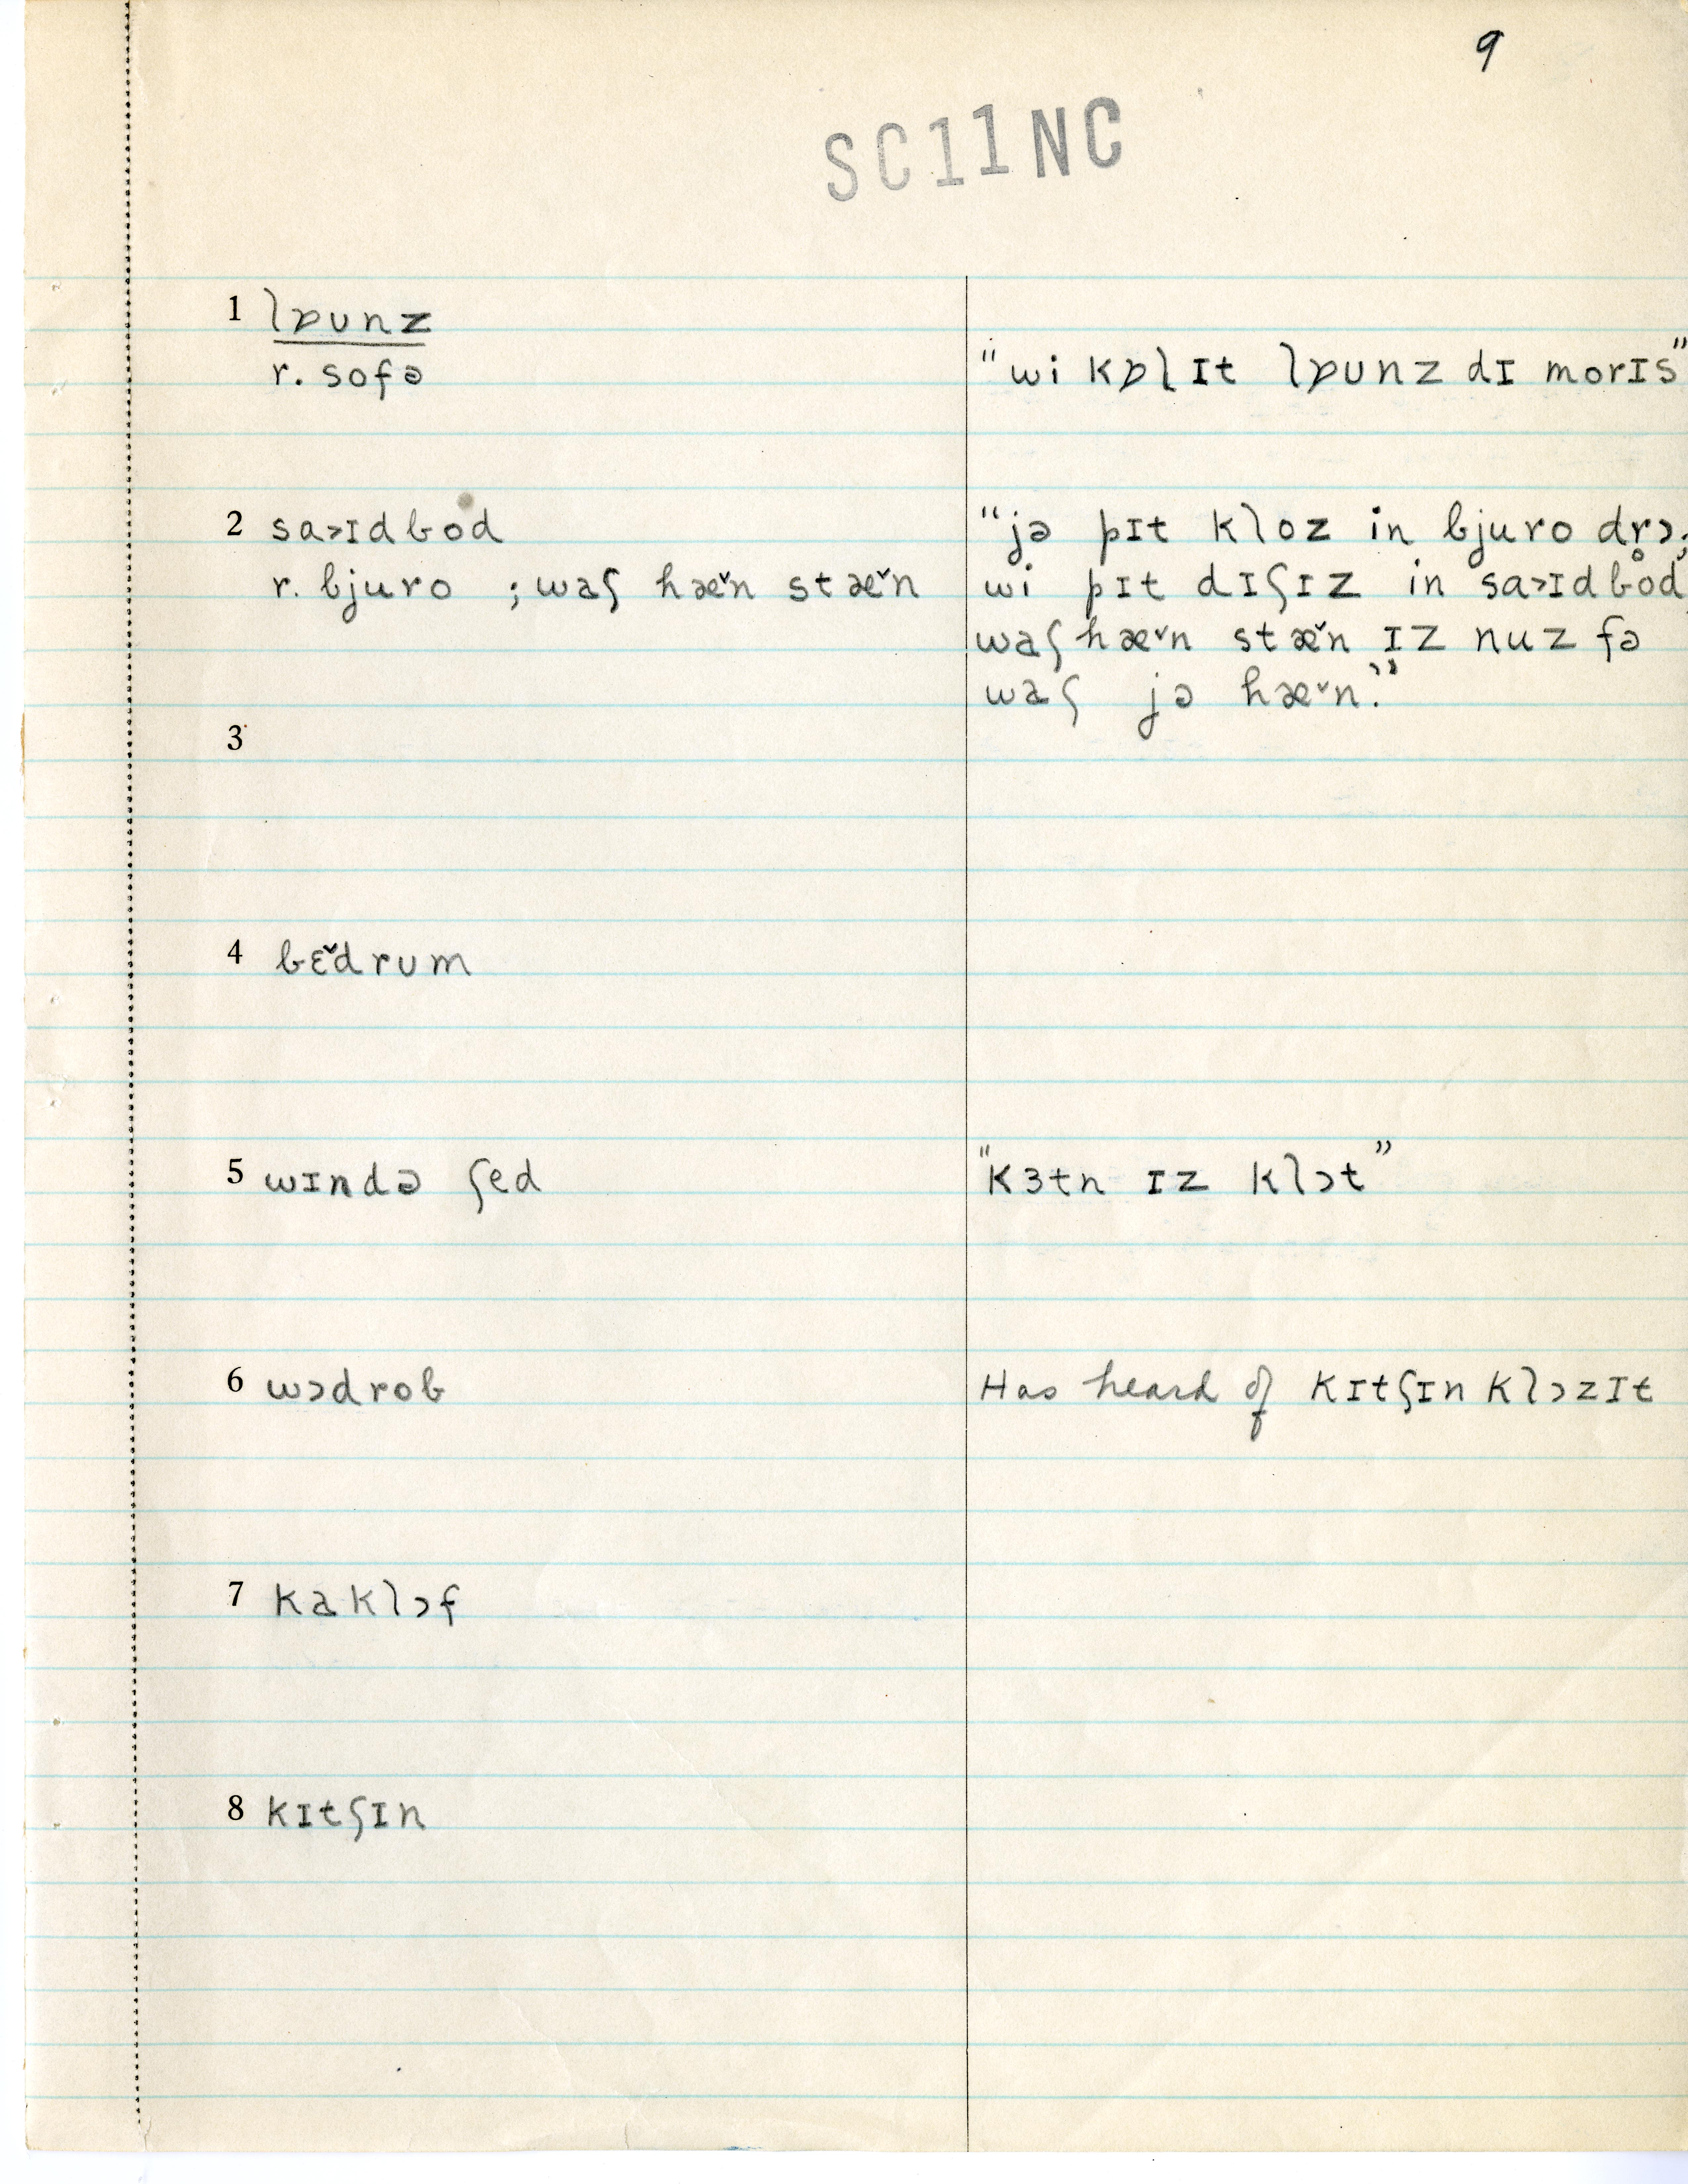 9
SC11NC
1 lɒunz
r. sofə
"wi kɒl ɪt lɒunz dɪ morɪs"
2 sa˃ɪdbod
r. bjuro ; waʃ hæ˅n stæ˅n
"jə pɪt kloz in bjuro dr̥ɔ;
wi pɪt dɪʃɪz in sa˃ɪdbod,
waʃ hæ˅n stæ˅n ɪz nuz fə
waʃ jə hæ˅n."
3
4 bɛ˅drum
5 wɪndə ʃed
"kɜtn ɪz klɔt"
6 wɔdrob
Has heard of kɪtʃɪn klɔzɪt
7 kaklɔf
8 kɪtʃɪn